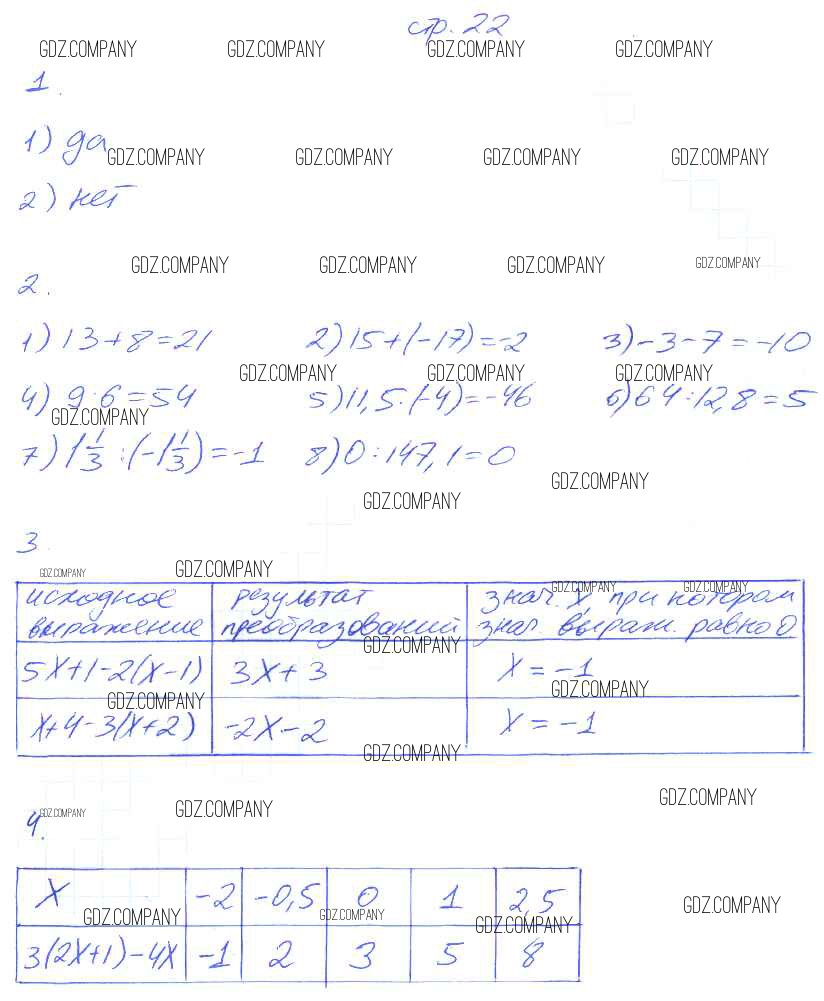 стр. 22
GDZ.COMPANY GDZ.COMPANY GDZ.COMPANY GDZ.COMPANY
1.
1) да
GDZ.COMPANY GDZ.COMPANY GDZ.COMPANY GDZ.COMPANY
2) нет
GDZ.COMPANY GDZ.COMPANY GDZ.COMPANY GDZ.COMPANY
2.
1) 13+8=21 2) 15+(-17)=-2 3) -3-7=-10
GDZ.COMPANY GDZ.COMPANY GDZ.COMPANY
4) 9·6=54 5) 11,5·(-4)=-46 6) 64:12,8=5
GDZ.COMPANY
7) 1 1/3 : (-1 1/3) = -1 8) 0:147,1=0
GDZ.COMPANY
GDZ.COMPANY
3.
GDZ.COMPANY GDZ.COMPANY
GDZ.COMPANY GDZ.COMPANY
исходное результат знач. х, при котором
выражение преобразований знач. выраж. равно 0
GDZ.COMPANY
5х+1-2(х-1) 3х+3 х=-1
GDZ.COMPANY
GDZ.COMPANY
х+4-3(х+2) -2х-2 х=-1
GDZ.COMPANY
GDZ.COMPANY
GDZ.COMPANY GDZ.COMPANY
4.
х -2 -0,5 0 1 2,5
GDZ.COMPANY GDZ.COMPANY GDZ.COMPANY GDZ.COMPANY
3(2х+1)-4х -1 2 3 5 8